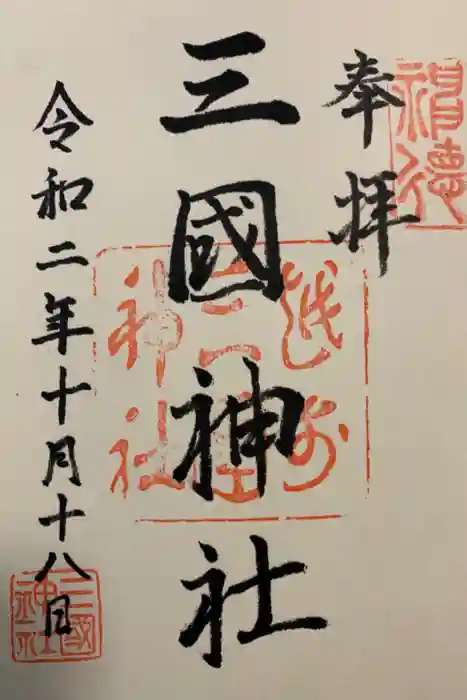 奉拝
三國神社
越前
三國
神社
令和二年十月十八日
三國
神社